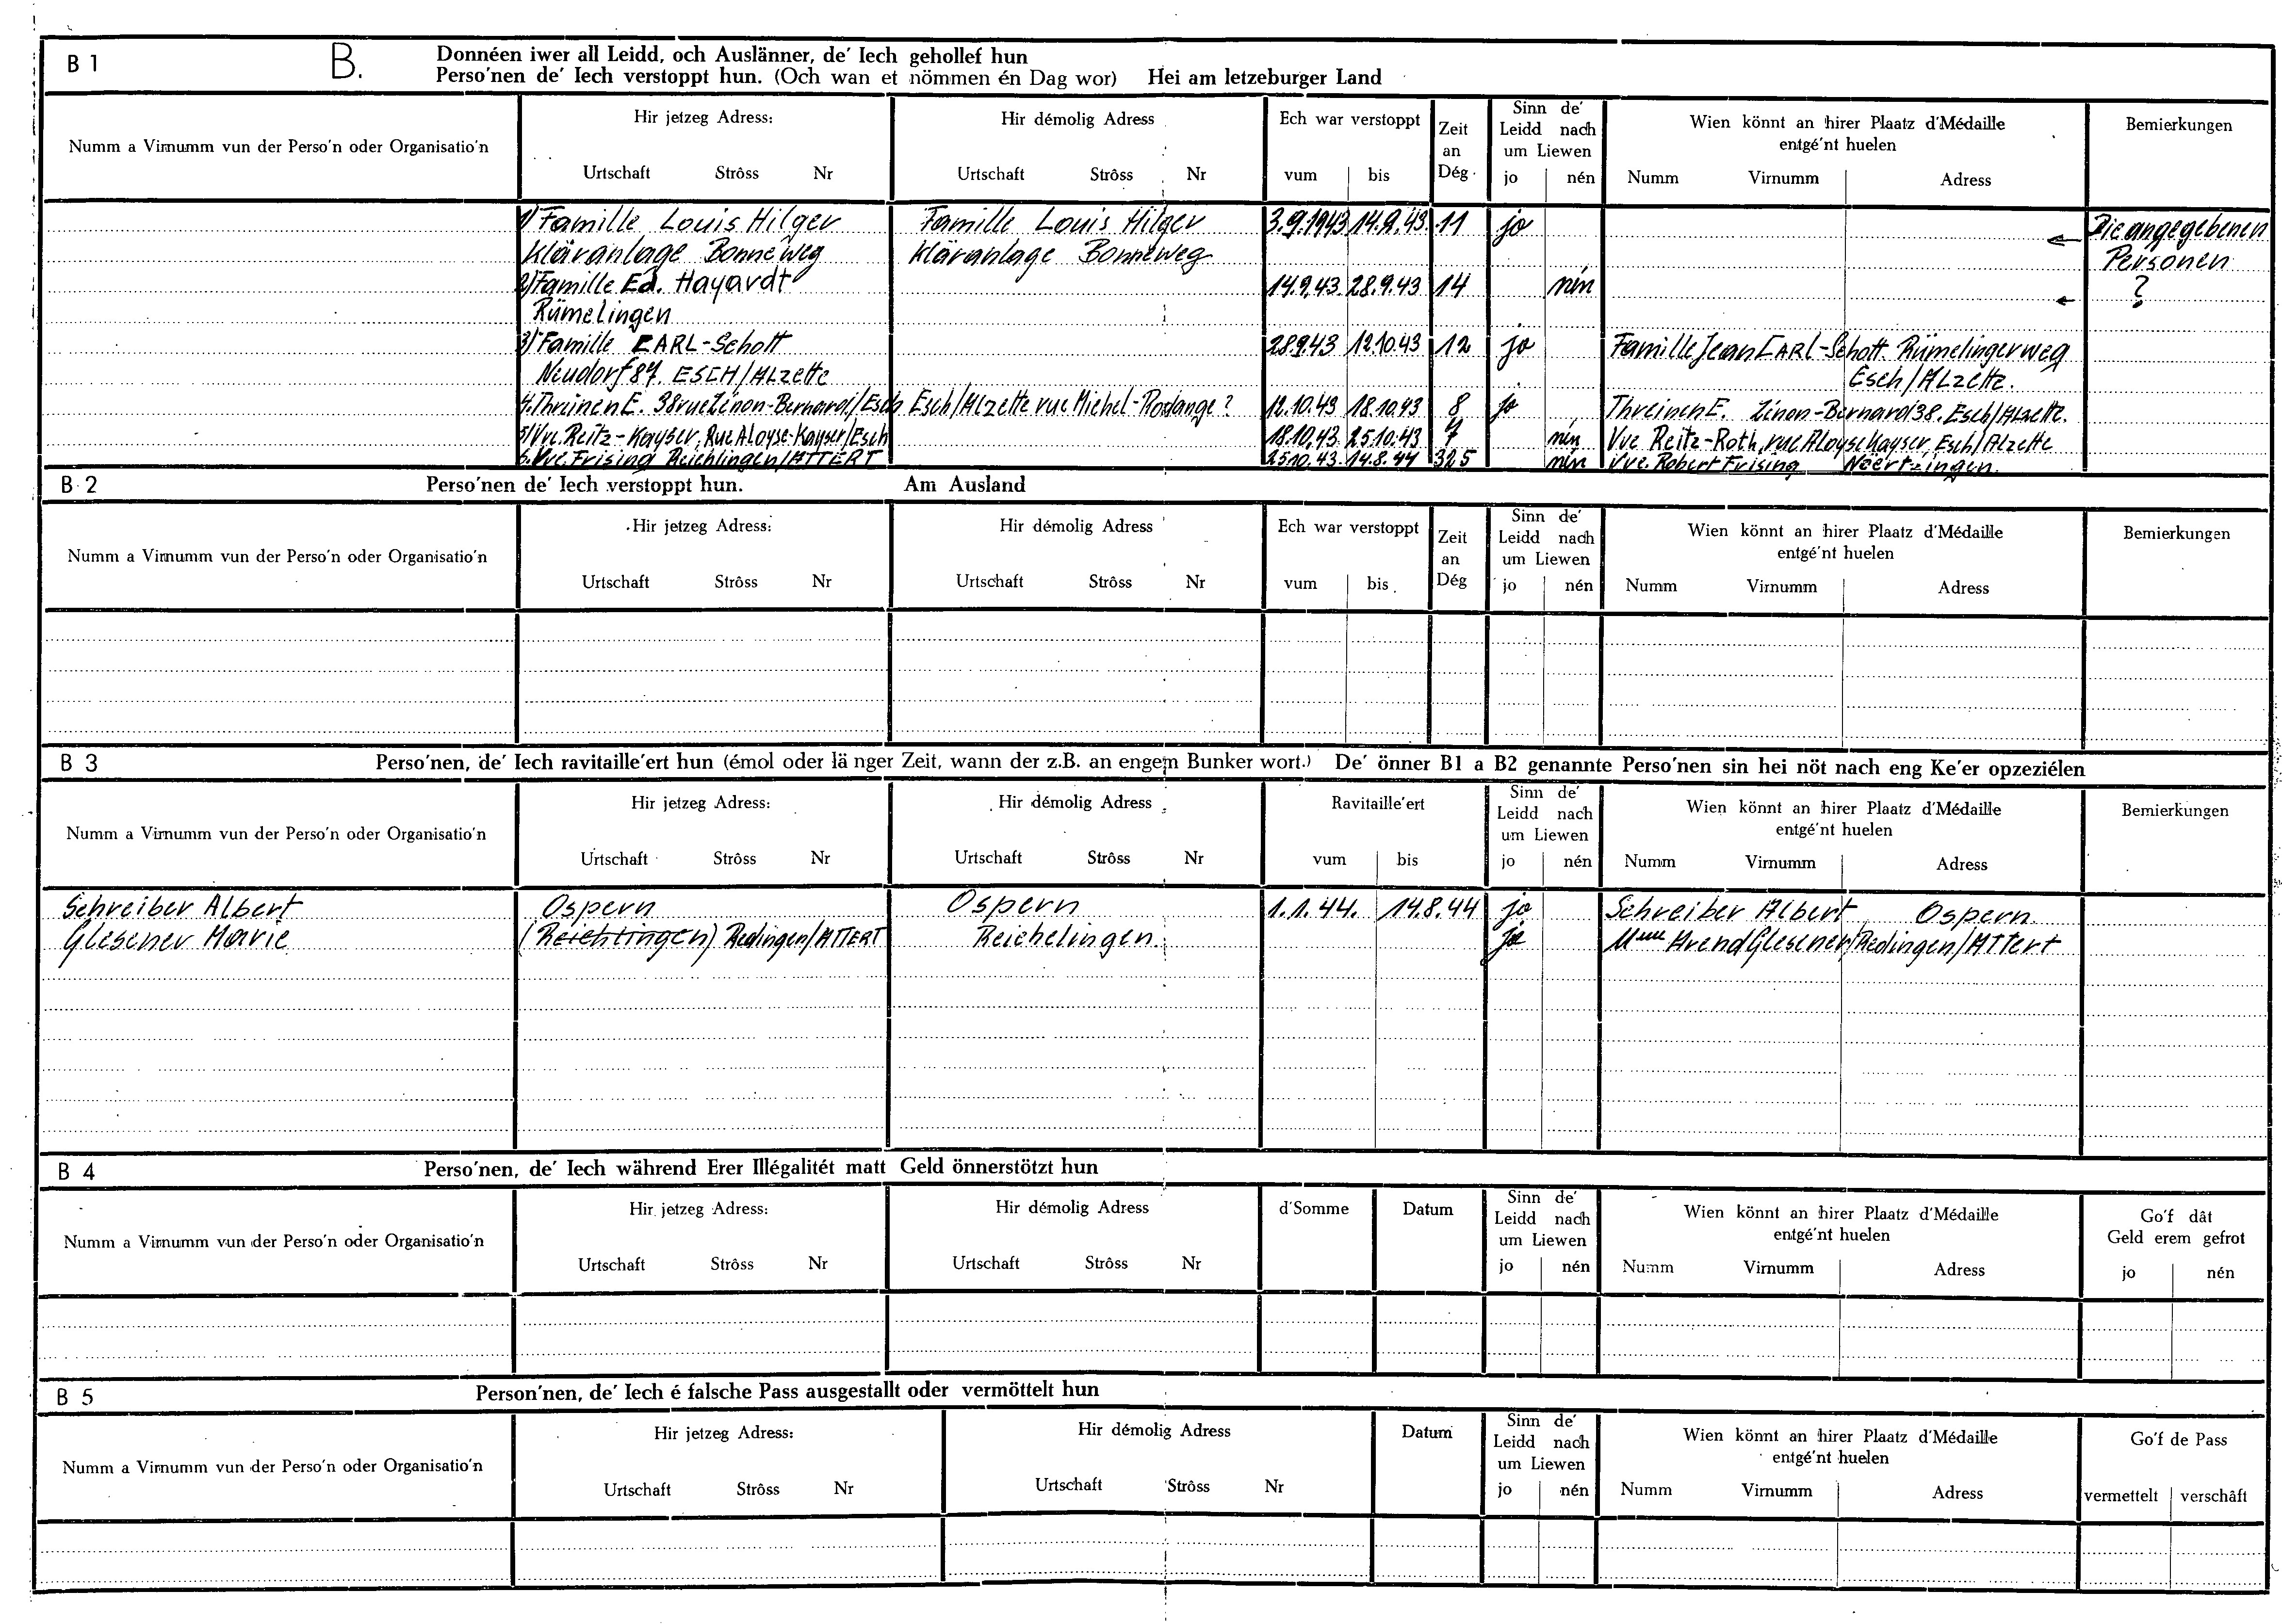 B 1 B. Donnéen iwer all Leidd, och Auslänner, de' Iech gehollef hun
Perso'nen de' Iech verstoppt hun. (Och wan et nömmen én Dag wor) Hei am letzeburger Land
Numm a Virnumm vun der Perso'n oder Organisatio'n
Hir jetzeg Adress:
Urtschaft Strôss Nr
Hir démolig Adress
Urtschaft Strôss Nr
Ech war verstoppt
vum bis
Zeit
an
Dég
Sinn de'
Leidd nach
um Liewen
jo nén
Wien könnt an hirer Plaatz d'Médaille
entgé'nt huelen
Numm Virnumm Adress
Bemierkungen
1) Famille Louis Hilger Famille Louis Hilger 3.9.1943 14.9.43. 11 jo Die angegebenen
Kläranlage Bonneweg Kläranlage Bonneweg Personen
2) Famille Ed. Hayardt 14.9.43. 28.9.43 14 nén ?
Rümelingen
3) Famille EARL-Schott 28.9.43 12.10.43 12 jo Famille Jean EARL-Schott Rümelingerweg
Neudorf 87. ESCH/Alzette Esch/Alzette.
4. Threinen E. 38 rue Zénon-Bernard/Esch Esch/Alzette rue Michel-Rodange? 12.10.43 18.10.43 8 jo Threinen E. Zénon-Bernard 38. Esch/Alzette.
5) Vve. Reitz-Kayser, Rue Aloyse-Kayser/Esch 18.10.43 25.10.43 7 nén Vve Reitz-Roth, rue Aloyse Kayser, Esch/Alzette
6. Vve. Frising Reichlingen/ATTERT 25.10.43. 14.8.44 325 nén Vve. Robert Frising Nöertzingen.
B 2 Perso'nen de' Iech verstoppt hun. Am Ausland
Numm a Virnumm vun der Perso'n oder Organisatio'n
Hir jetzeg Adress:
Urtschaft Strôss Nr
Hir démolig Adress
Urtschaft Strôss Nr
Ech war verstoppt
vum bis
Zeit
an
Dég
Sinn de'
Leidd nach
um Liewen
jo nén
Wien könnt an hirer Plaatz d'Médaille
entgé'nt huelen
Numm Virnumm Adress
Bemierkungen
B 3 Perso'nen, de' Iech ravitaille'ert hun (émol oder länger Zeit, wann der z.B. an engem Bunker wort.) De' önner B1 a B2 genannte Perso'nen sin hei nöt nach eng Ke'er opzeziélen
Numm a Virnumm vun der Perso'n oder Organisatio'n
Hir jetzeg Adress:
Urtschaft Strôss Nr
Hir démolig Adress
Urtschaft Strôss Nr
Ravitaille'ert
vum bis
Sinn de'
Leidd nach
um Liewen
jo nén
Wien könnt an hirer Plaatz d'Médaille
entgé'nt huelen
Numm Virnumm Adress
Bemierkungen
Schreiber Albert Ospern Ospern 1.1.44. 14.8.44 jo Schreiber Albert Ospern
Glesener Marie (Reichlingen) Redingen/ATTERT Reichelingen. jo Mme Arend Glesener Redingen/Attert
B 4 Perso'nen, de' Iech während Erer Illégalitét matt Geld önnerstötzt hun
Numm a Virnumm vun der Perso'n oder Organisatio'n
Hir jetzeg Adress:
Urtschaft Strôss Nr
Hir démolig Adress
Urtschaft Strôss Nr
d'Somme
Datum
Sinn de'
Leidd nach
um Liewen
jo nén
Wien könnt an hirer Plaatz d'Médaille
entgé'nt huelen
Numm Virnumm Adress
Go'f dât
Geld erem gefrot
jo nén
B 5 Person'nen, de' Iech é falsche Pass ausgestallt oder vermöttelt hun
Numm a Virnumm vun der Perso'n oder Organisatio'n
Hir jetzeg Adress:
Urtschaft Strôss Nr
Hir démolig Adress
Urtschaft Strôss Nr
Datum
Sinn de'
Leidd nach
um Liewen
jo nén
Wien könnt an hirer Plaatz d'Médaille
entgé'nt huelen
Numm Virnumm Adress
Go'f de Pass
vermettelt verschâft